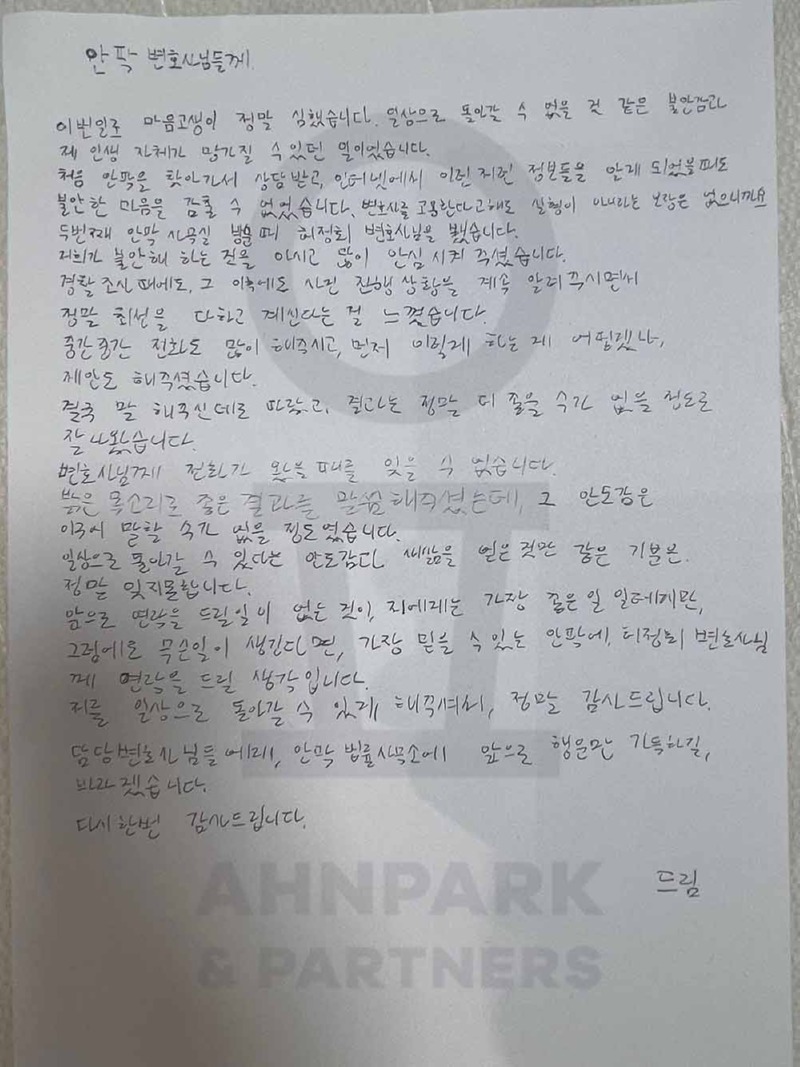 안팍 변호사님들께
이번일로 마음고생이 정말 심했습니다. 일상으로 돌아갈 수 없을 것 같은 불안감과
제 인생 자체가 망가질 수 있던 일이었습니다.
처음 안팍을 찾아가서 상담받고, 인터넷에서 이런저런 정보들을 알게 되었을때도
불안한 마음을 감출 수 없었습니다. 변호사를 고용한다고해도 실형이 아니라는 보장은 없으니까요
두번째 안팍 사무실 방문때 허정회 변호사님을 뵀습니다.
저희가 불안해 하는 것을 아시고 많이 안심 시켜 주셨습니다.
경찰 조사 때에도, 그 이후에도 사건 진행상황을 계속 알려주시면서
정말 최선을 다하고 계신다는 걸 느꼈습니다.
중간중간 전화도 많이 해주시고, 먼저 이렇게 하는게 어떻겠냐,
제안도 해주셨습니다.
결국 말 해주신데로 따랐고, 결과는 정말 더 좋을 수가 없을 정도로
잘 나왔습니다.
변호사님께 전화가 왔을때를 잊을 수 없습니다.
밝은 목소리로 좋은 결과를 말씀해주셨는데, 그 안도감은
이루어 말할 수가 없을 정도였습니다.
일상으로 돌아갈 수 있다는 안도감다 새삶을 얻은것만 같은 기분은.
정말 잊지못합니다.
앞으로 연락을 드릴일이 없는 것이, 저에게는 가장 좋은일 일테지만,
그럼에도 무슨일이 생긴다면, 가장 믿을 수 있는 안팍에, 허정회 변호사님
께 연락을 드릴 생각입니다.
저를 일상으로 돌아갈 수 있게 해주셔서, 정말 감사드립니다.
담당변호사님들에게, 안팍 법률사무소에 앞으로 행운만 가득하길,
바라겠습니다.
다시한번 감사드립니다.
드림
AHNPARK
& PARTNERS